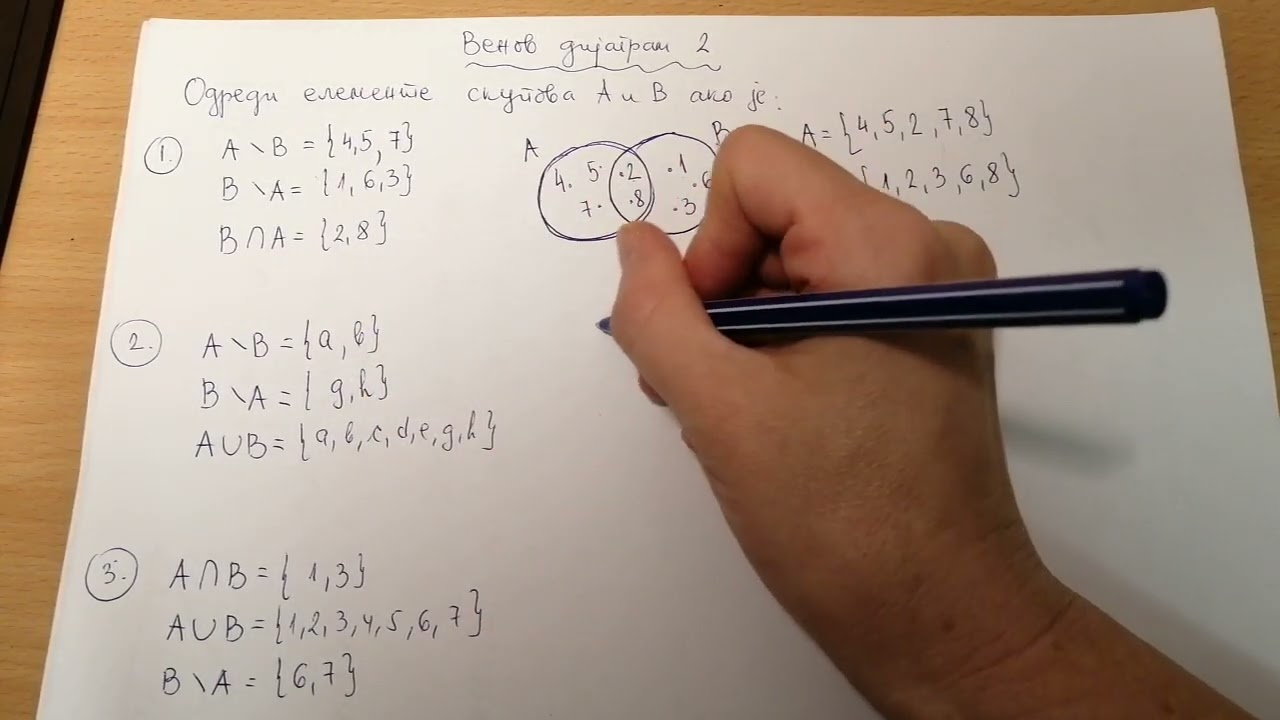 Венов дијаграм 2
Одреди елементе скупова A и B ако је:
1.
A \ B = {4,5,7}
B \ A = {1,6,3}
B ∩ A = {2,8}
A
B
4. 5. .2 .1
7. .8 .6
.3
A = {4,5,2,7,8}
{1,2,3,6,8}
2.
A \ B = {a, b}
B \ A = { g, h}
A ∪ B = {a, b, c, d, e, g, h}
3.
A ∩ B = { 1,3}
A ∪ B = {1,2,3,4,5,6,7}
B \ A = {6,7}